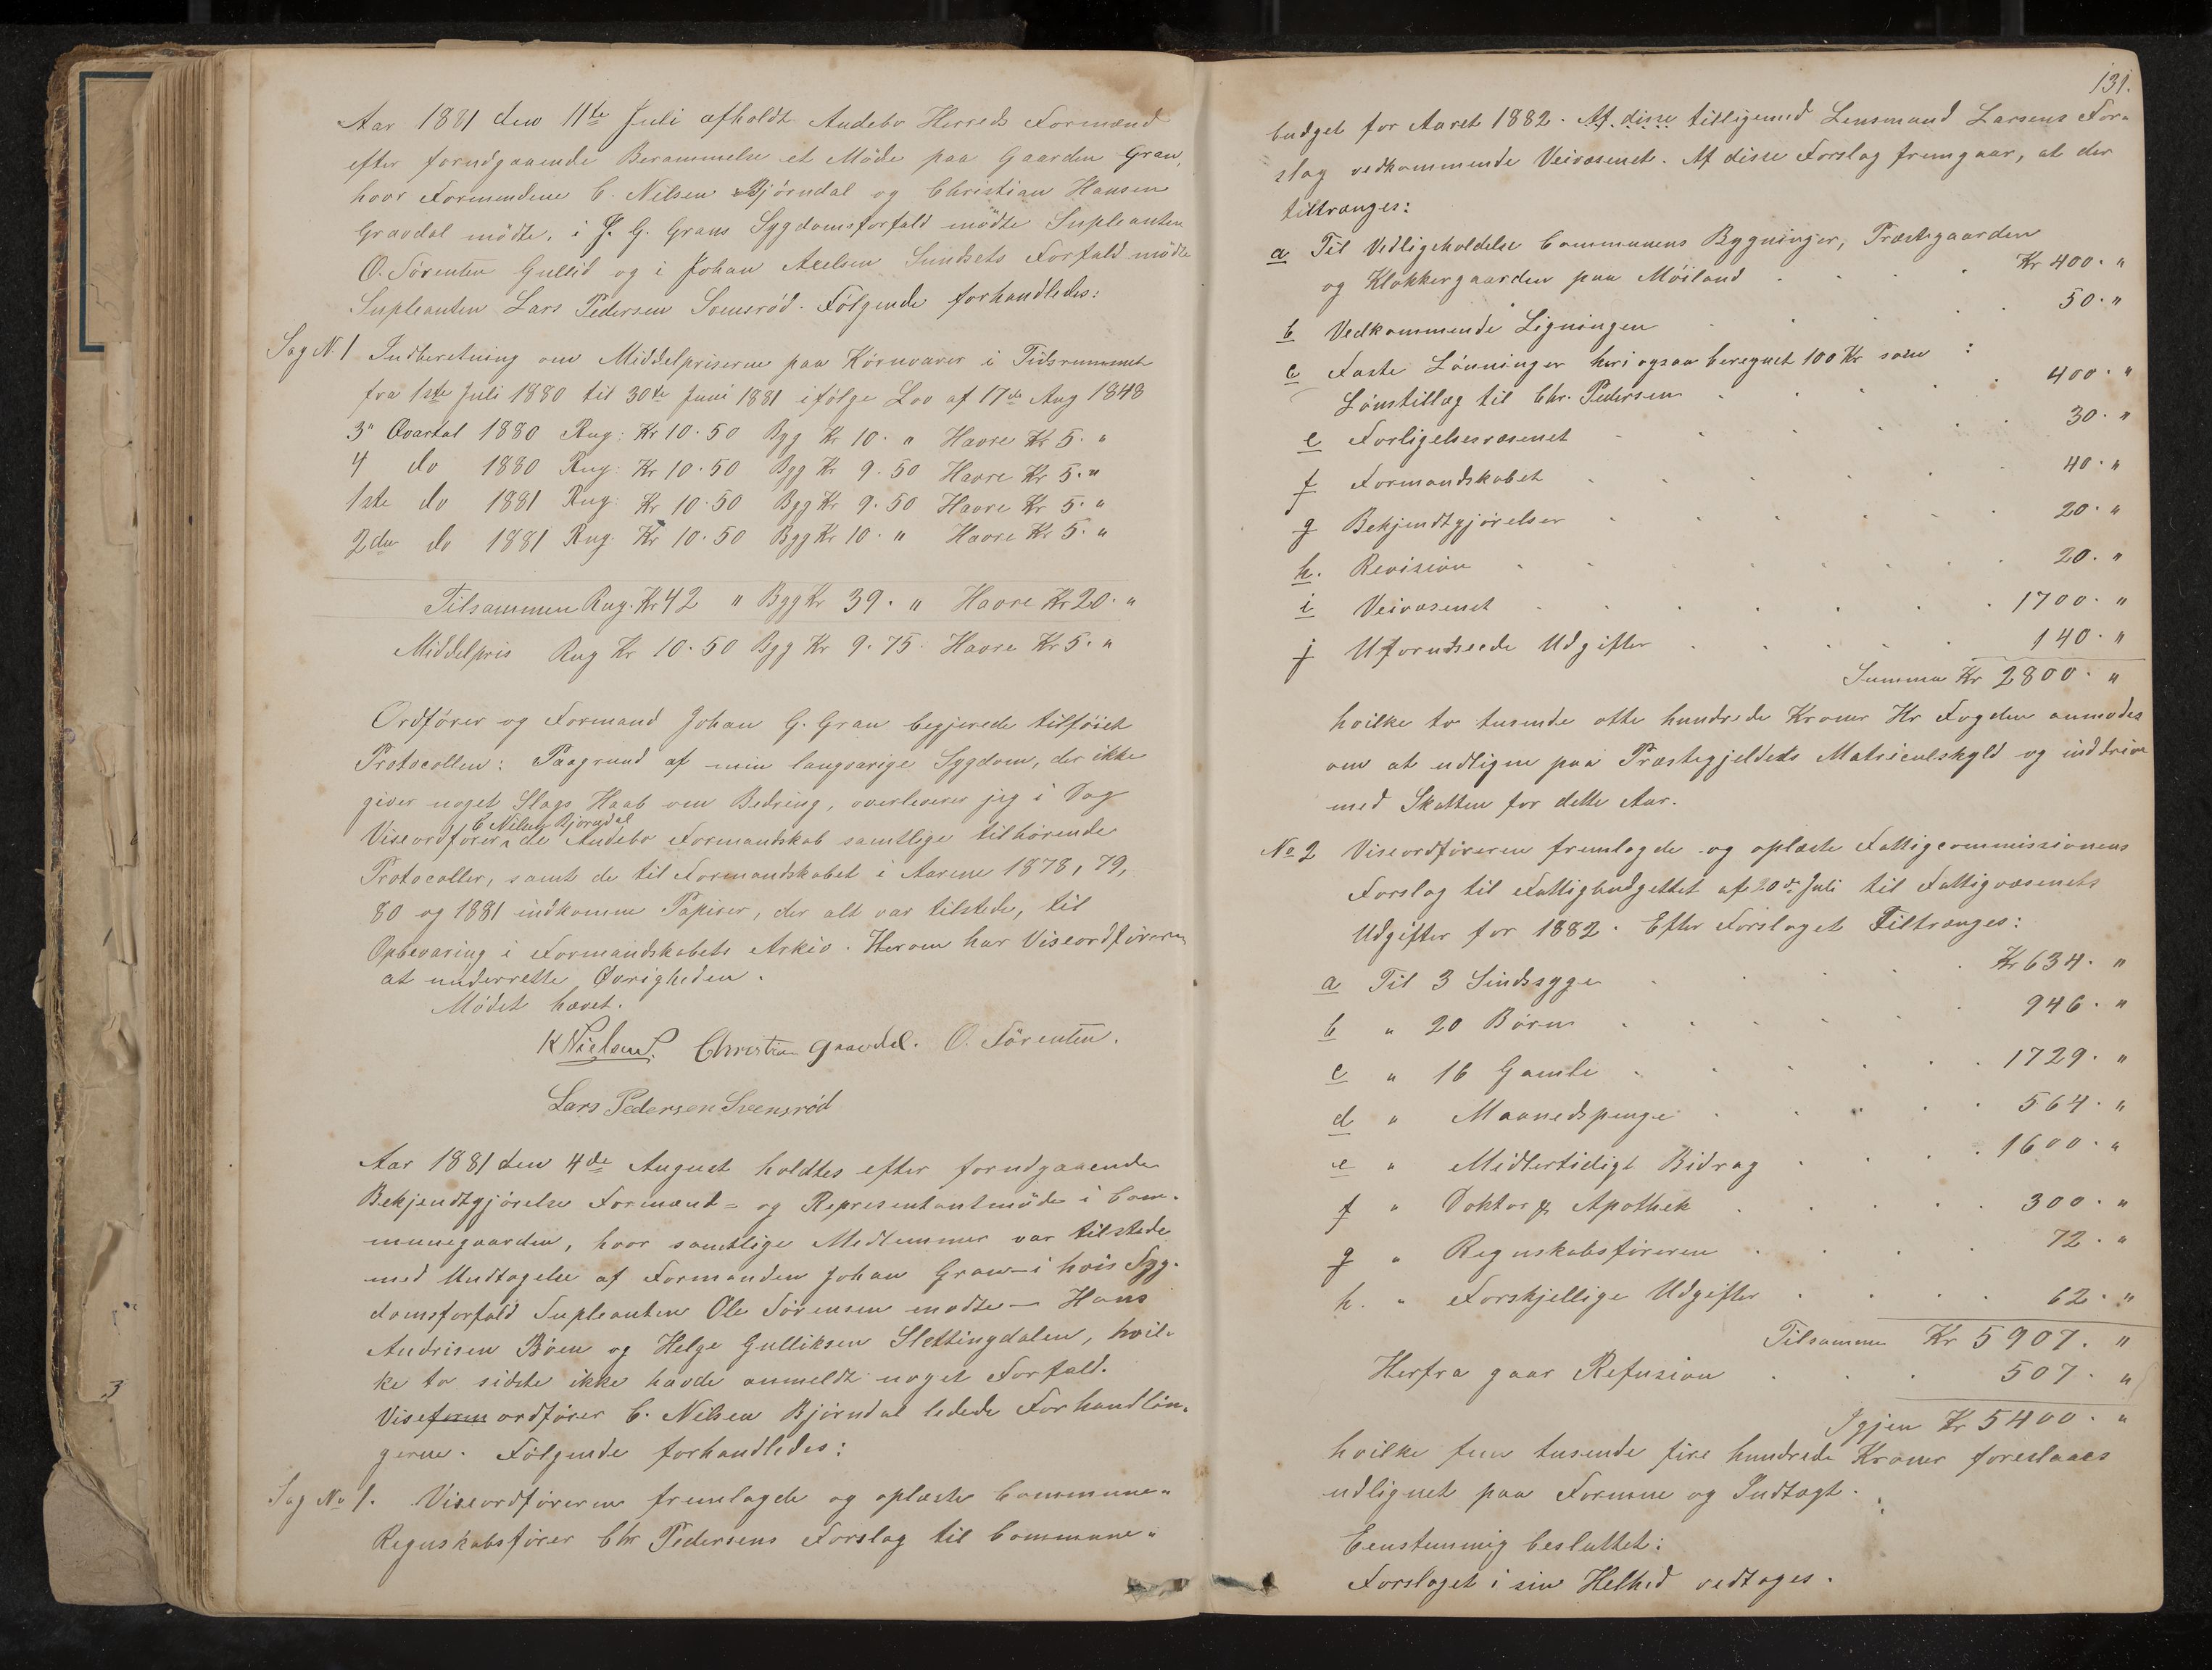 Aar 1881 den 11te Juli afholdt Andebo Herreds Formænd
efter forudgaaende Berammelse et Möde paa Gaarden Gran,
hvor Formendene C. Nilsen Bjørndal og Christian Hansen
Gravdal mödte, i J. G. Grans Sygdomsforfald mödte Supleanten
O. Sörenten Gullid og i Johan Axelsen Sundsets Forfald mödte
Supleanten Lars Pedersen Svensröd. Fölgende forhandledes:
Sag N. 1 Indberetning om Middelpriserne paa Kornvarer i Tidsrummet
fra 1ste Juli 1880 til 30te Juni 1881 ifölge Lov af 17de Aug 1848
3" Qvartal 1880 Rug: Kr 10.50 Byg Kr 10. " Havre Kr 5. "
4 do 1880 Rug: Kr 10.50 Byg Kr 9.50 Havre Kr 5. "
1ste do 1881 Rug: Kr 10.50 Byg Kr 9.50 Havre Kr 5. "
2den do 1881 Rug. Kr 10.50 Byg Kr 10. " Havre Kr 5. "
Tilsammen Rug. Kr 42 " Byg Kr 39. " Havre Kr 20. "
Middelpris Rug Kr 10.50 Byg Kr 9.75. Havre Kr 5. "
Ordförer og Formand Johan G. Gran begjerede tilföiet
Protocollen: Paagrund af min langvarige Sygdom, der ikke
giver noget Slags Haab om Bedring, overleverer jeg i Dag
C Nilsen Bjorndal
Viseordförer de Andebo Formandskab samtlige tilhörende
Protocoller, samt de til Formandskabet i Aarene 1878, 79,
80 og 1881 indkomne Papirer, der alt var tilstede, til
Opbevaring i Formandskabets Arkiv. Herom har Viseordföreren
at underrette Øvrigheden.
Mödet hævet.
K Nielsen. Christian Gravdal. O. Sörenten.
Lars Pedersen Svensröd
Aar 1881 den 4de August holdtes efter forudgaaende
Bekjendtgjörelse Formænd= og Representantmöde i Com-
munegaarden, hvor samtlige Medlemmer var tilstede
med Undtagelse af Formanden Johan Gran – i hvis Syg-
domsforfald Supleanten Ole Sörensen mødte – Hans
Andrisen Böen og Helge Gulliksen Slettingdalen, hvil-
ke to sidste ikke havde anmeldt noget Forfald.
Viseform ordförer C. Nilsen Bjørndal ledede Forhandlin-
gerne. Fölgende forhandledes:
Sag No 1. Viseordföreren fremlagde og oplæste Commune-
Regnskabsförer Chr Pedersens Forslag til Commune-
131.
budget for Aaret 1882. Af disse tilligemed Lensmand Larsens For-
slag vedkommende Veivæsenet. Af disse Forslag fremgaar, at der
tiltrænges:
a Til Vedligeholdelse Communens Bygninger, Præstegaarden
og Klokkergaarden paa Möiland . . . Kr 400. "
b Vedkommende Ligningen . . . 50. "
c Faste Lönninger heri ogsaa beregnet 100 Kr som :
Lönstillæg til Chr. Pedersen . . . 400. "
e Forligelsesvæsenet . . . 30. "
f Formandskabet . . . 40. "
g Bekjendtgjörelser . . . 20. "
h. Revision . . . 20. "
i Veivæsenet . . . 1700. "
j Uforudseede Udgifter . . . 140. "
Summa Kr 2800. "
hvilke to tusende otte hundrede Kroner Hr Fogden anmodes
om at udligne paa Præstegjeldets Matriculskyld og inddrive
med Skatten for dette Aar.
No 2 Viseordföreren fremlagde og oplæste Fattigcommissionens
Forslag til Fattigbudgettet af 20de Juli til Fattigvæsenets
Udgifter for 1882. Efter Forslaget Tiltrænges:
a Til 3 Sindssyge . . . Kr 634. "
b " 20 Börn . . . 946. "
c " 16 Gamle . . . 1729. "
d " Maanedspenge . . . 564. "
e " Midlertidigt Bidrag . . . 1600. "
f " Doktor & Apothek . . . 300. "
g " Regnskabsföreren . . . 72. "
h. " Forskjellige Udgifter . . . 62. "
Tilsammen Kr 5907. "
Herfra gaar Refusion . . . 507. "
Igjen Kr 5400. "
hvilke fem tusende fire hundrede Kroner foreslaaes
udlignet paa Formue og Indtægt.
Eenstemmig besluttet:
Forslaget i sin Helhed vedtages.